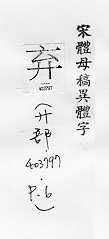 宋體母稿異體字
弃
(廾部
403797
.
P.6
)